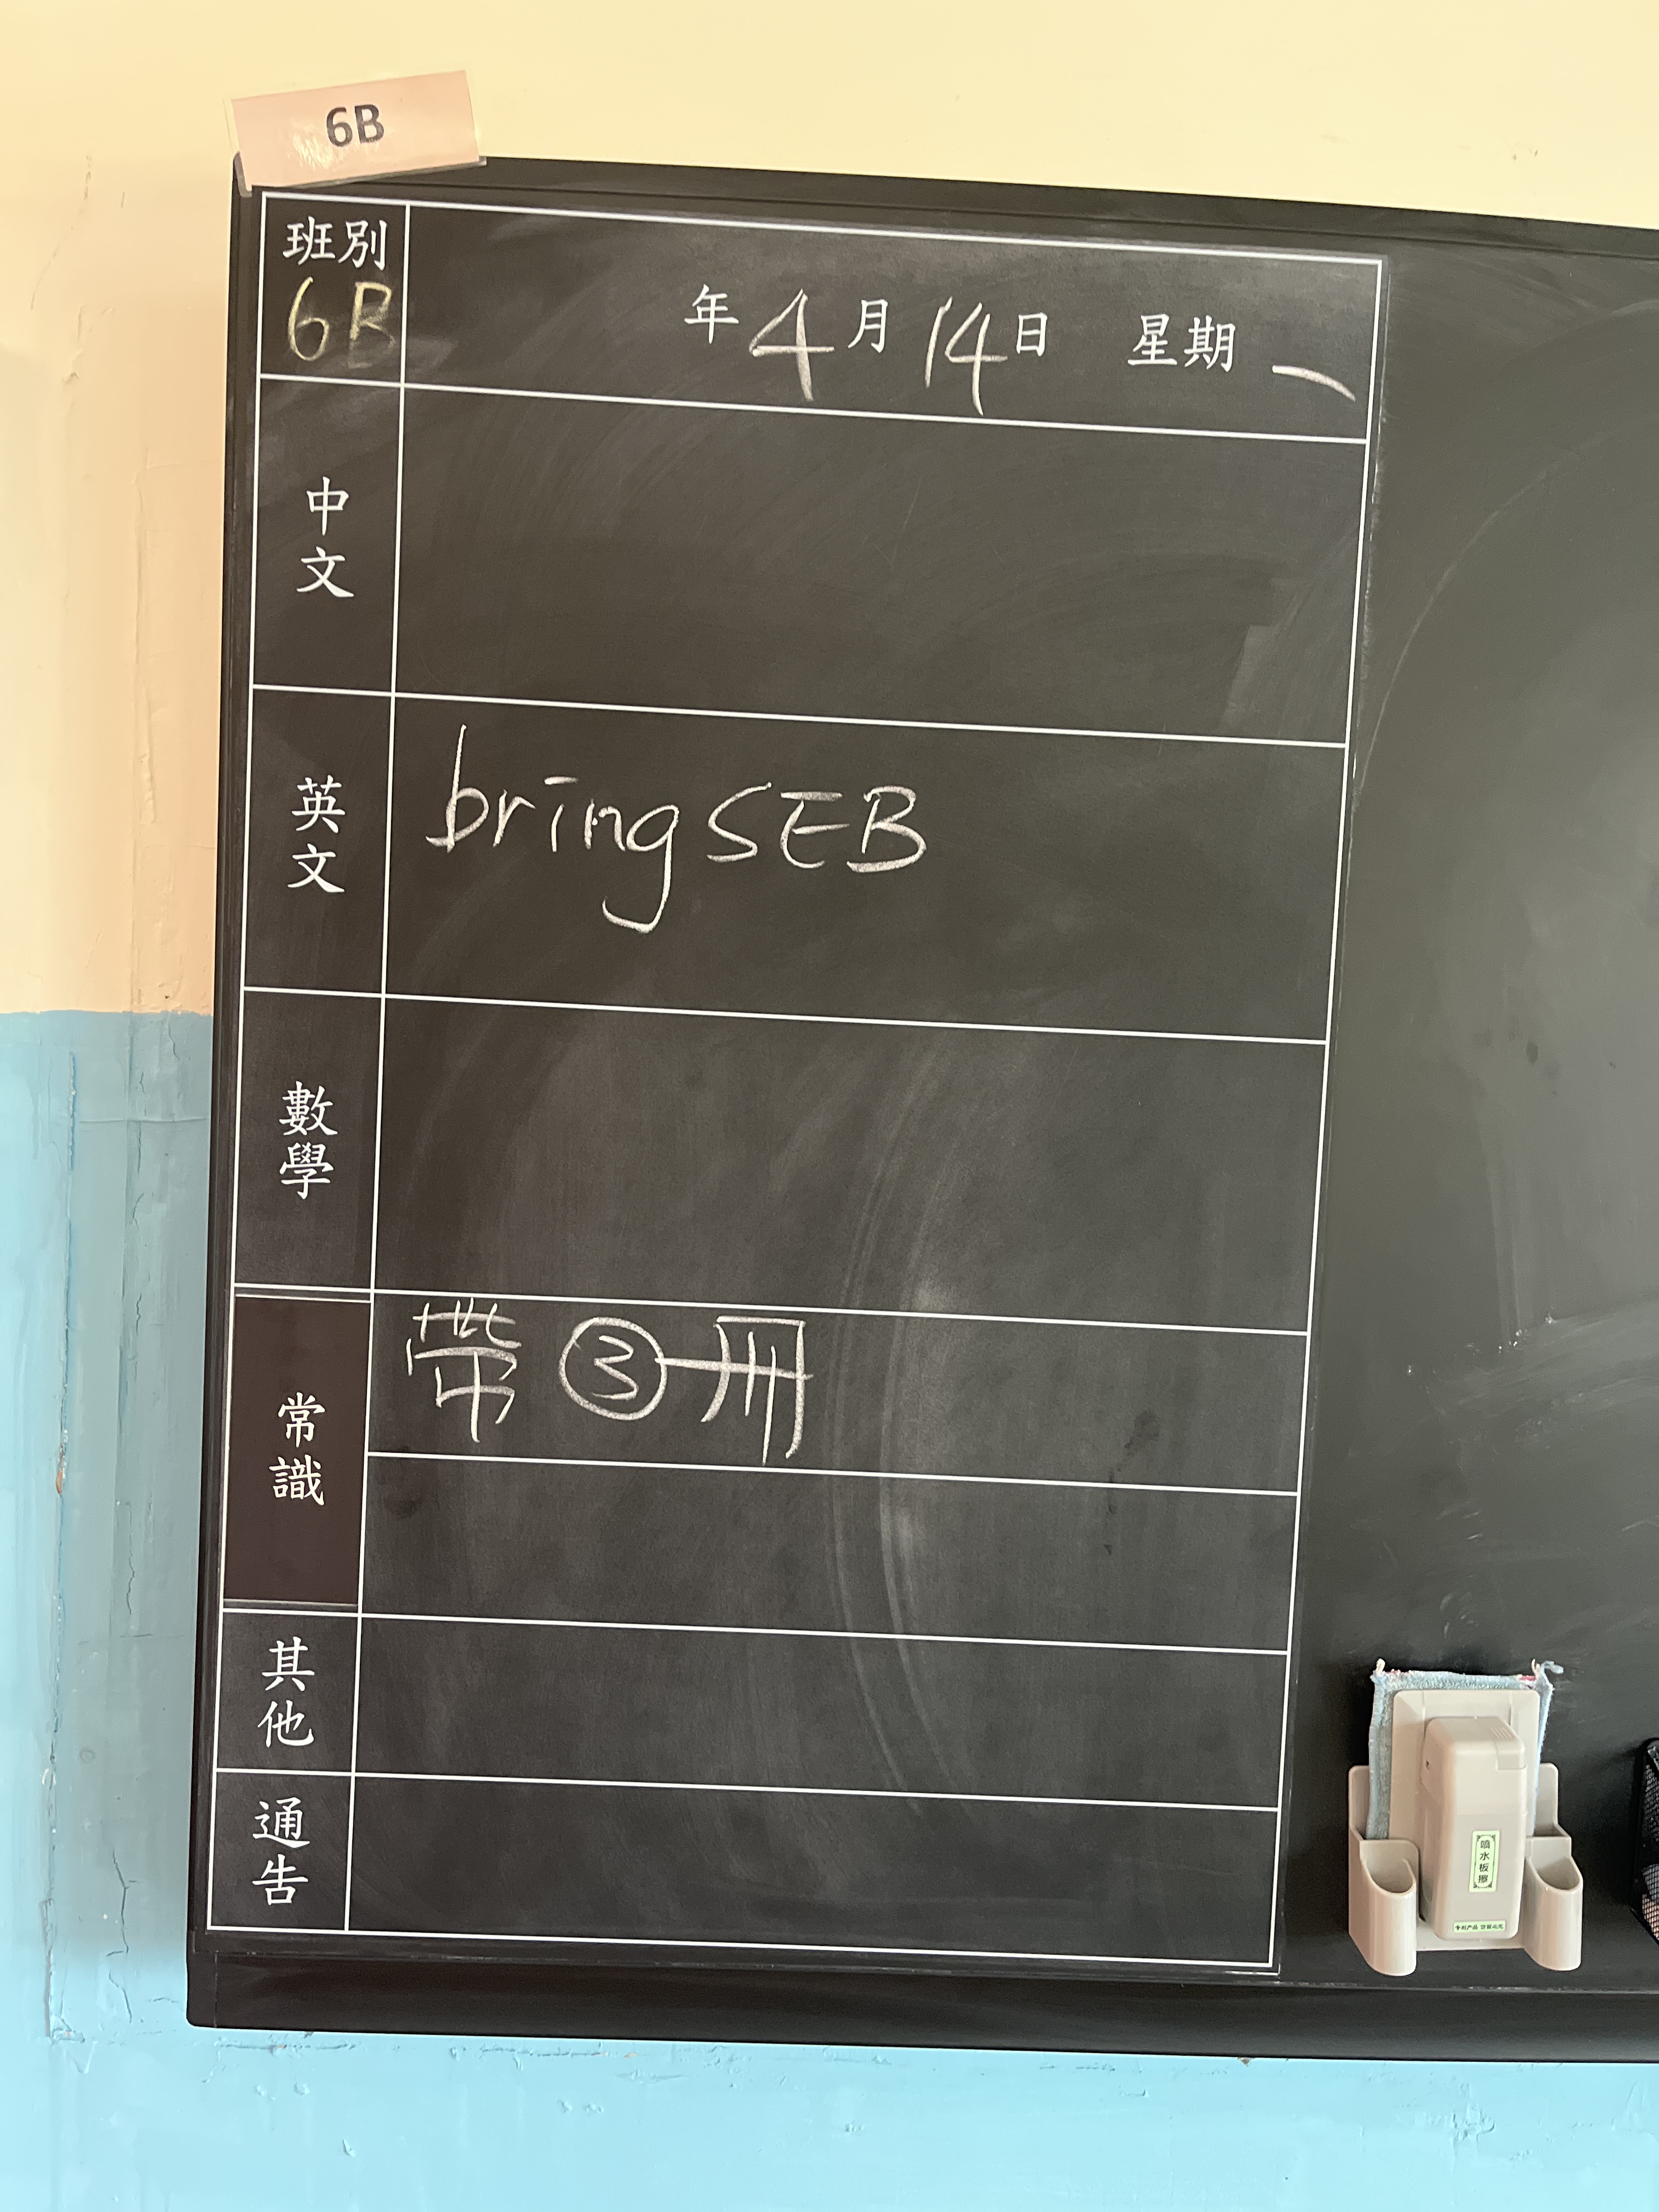 6B
班別
6B
年4月14日 星期一
中文
英文
bring SEB
數學
常識
帶③冊
其他
通告
噴水板擦